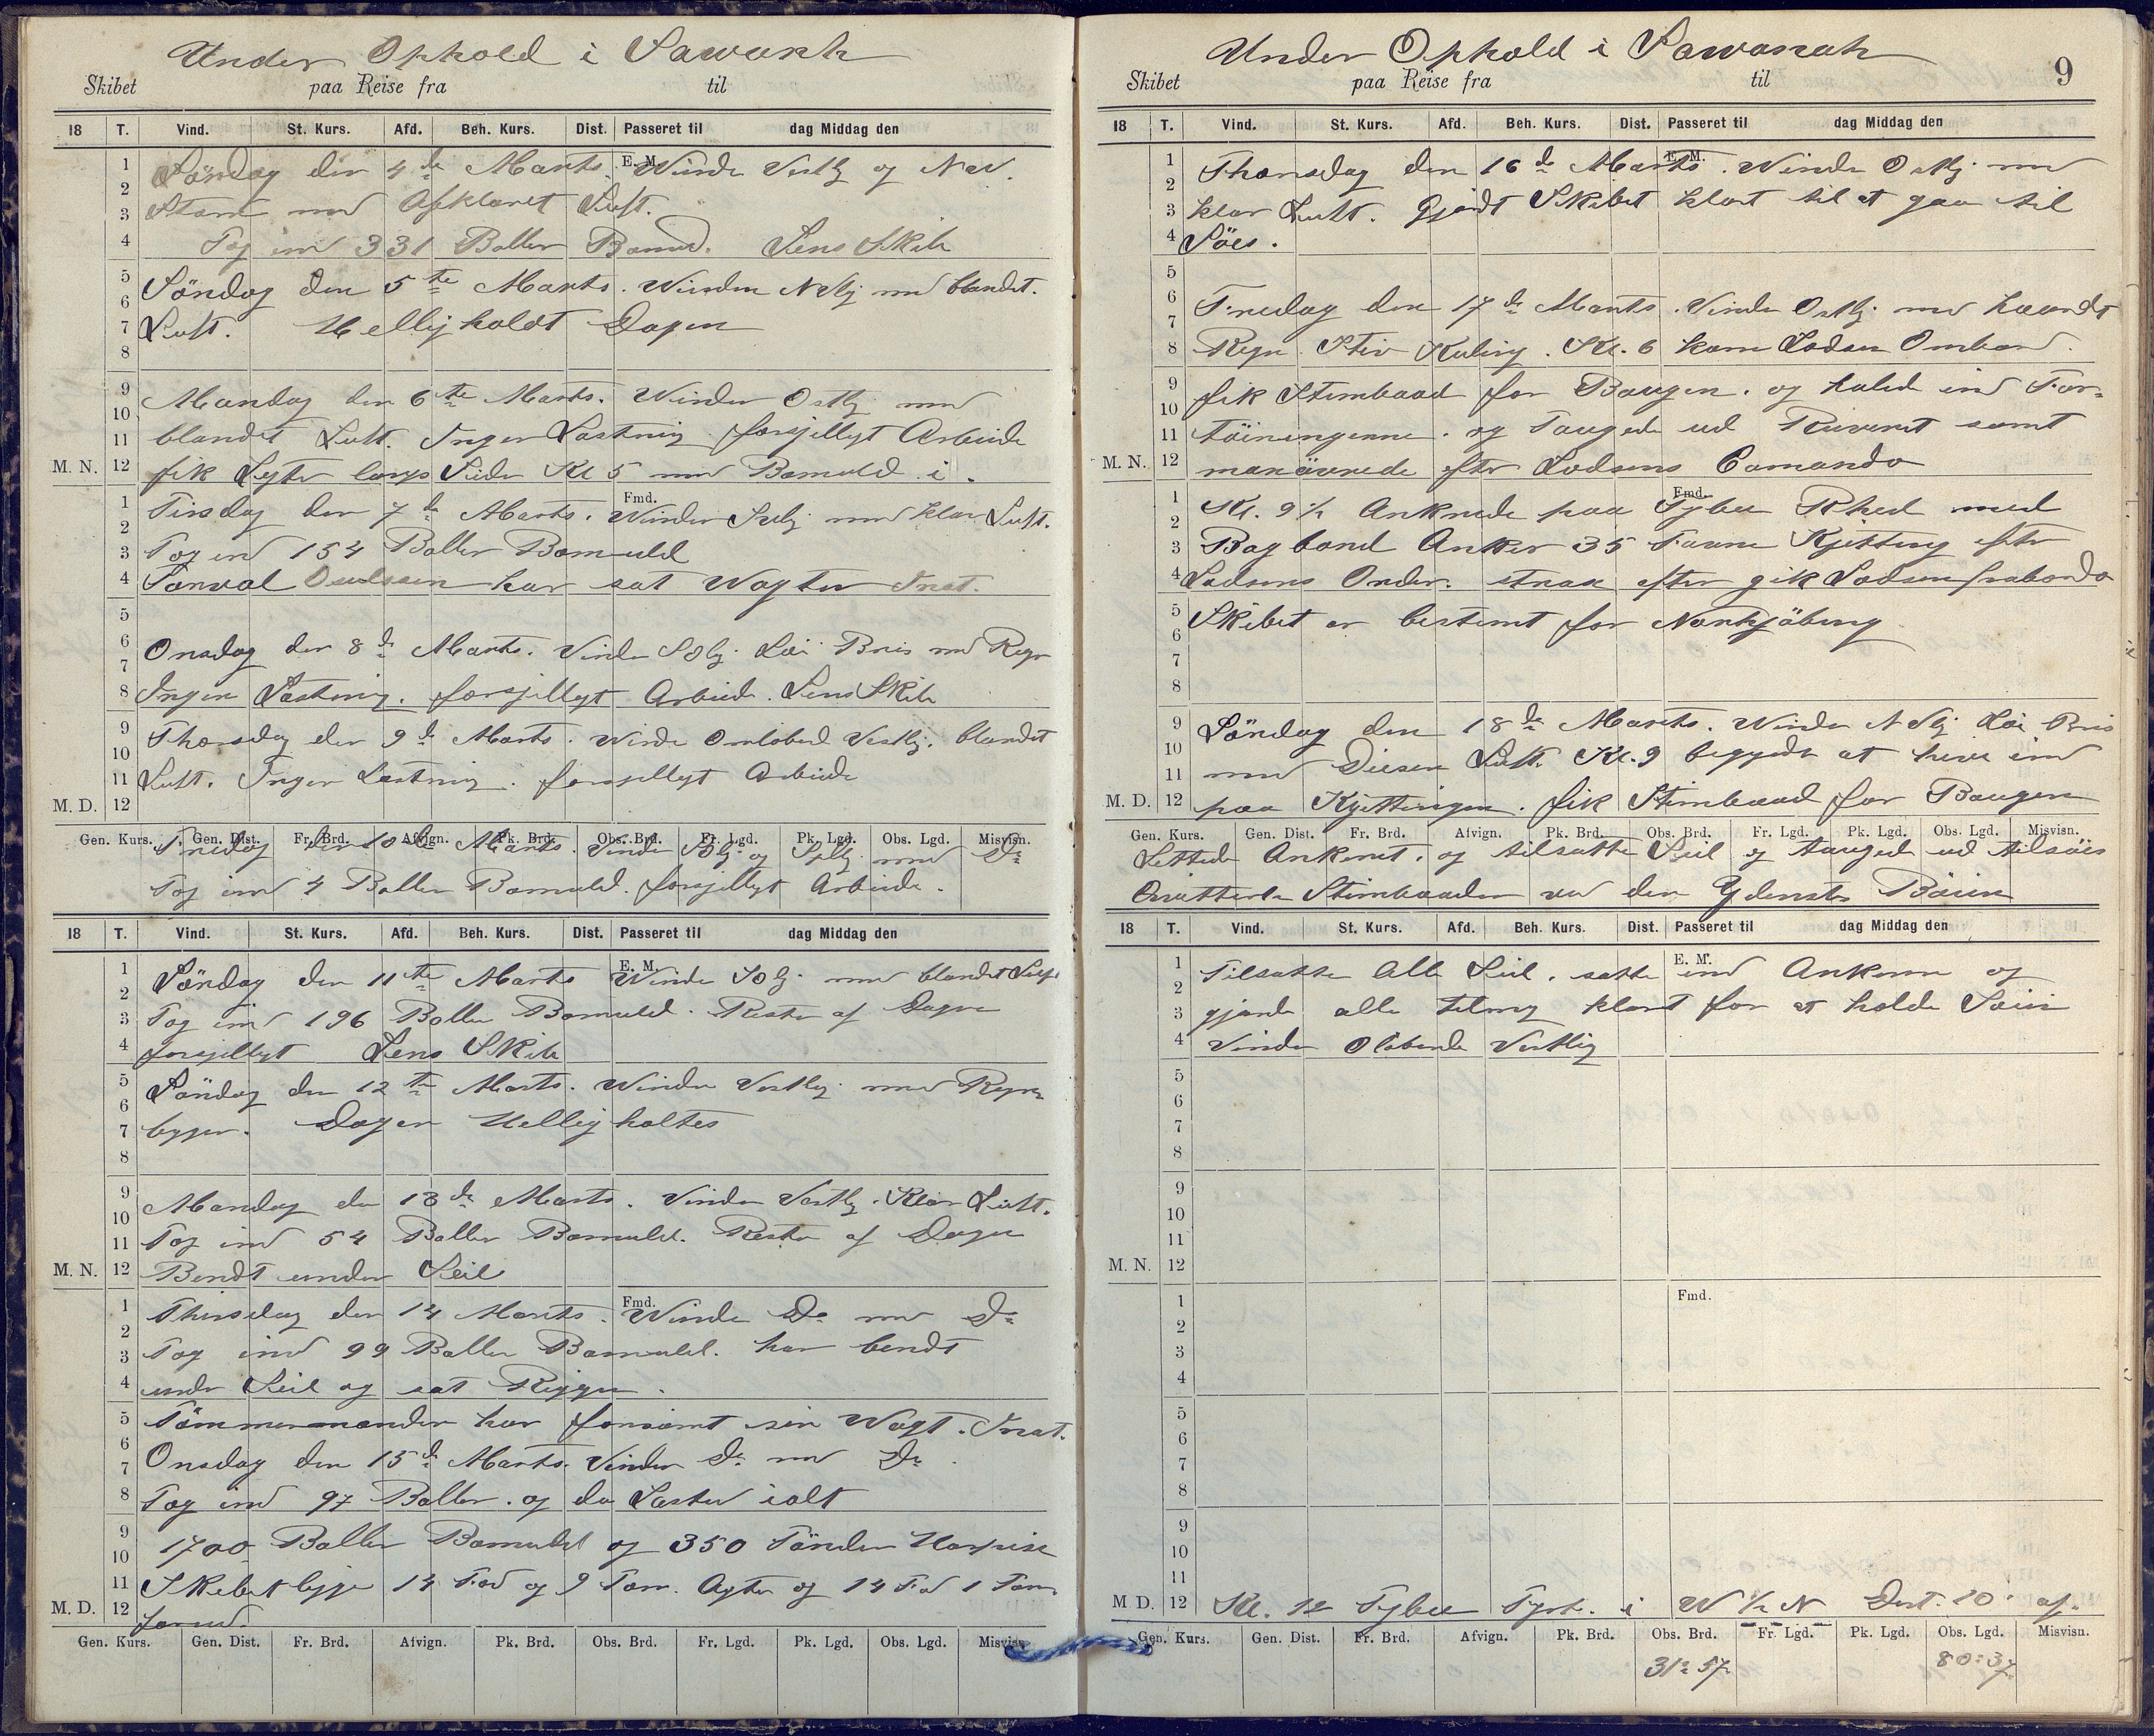 Under Ophold i Sawanh
Skibet paa Reise fra til
18 T. Vind. St. Kurs. Afd. Beh. Kurs. Dist. Passeret til dag Middag den
E. M.
Löndag den 4de Marts. Winde Vestlj og NW.
med Afklaret Luft.
Tog ind 331 Baller Bomuld. Lens Skib
Söndag den 5te Marts. Winden NVlj med blandet.
Luft. Helligholdt Dagen
Mandag den 6te Marts. Winden Ostlj med
blandet Luft. Ingen Lastning. forsjelligt Arbeide
fik Legter langs Siden Kl 5 med Bomuld i.
M. N.
Fmd.
Tirsdag den 7de Marts. Winden Svlj med klar Luft.
Tog ind 154 Baller Bomuld
har sat Wagten Inat.
Onsdag den 8de Marts. Vinde SOlj. Löi Bris med Regn
Ingen Lastning. forsjelligt Arbeide. Lens Skib
Thorsdag den 9de Marts. Winde Omlöbend Vestlj. blandet
Luft. Ingen Lastning. forsjelligt Arbeide
M. D.
Gen. Kurs. Gen. Dist. Fr. Brd. Afvign. Pk. Brd. Obs. Brd. Fr. Lgd. Pk. Lgd. Obs. Lgd. Misvisn.
Fredag den 10de Marts. Vinde SOlj og Sylj med Do
Tog ind 4 Baller Bomuld. forsjelligt Arbeide.
18 T. Vind. St. Kurs. Afd. Beh. Kurs. Dist. Passeret til dag Middag den
E. M.
Löndag den 11te Marts Winde SOlj. med blandet Luft
Tog ind 196 Baller Bomuld. Resten af Dagen
forsjelligt Lens Skib
Söndag den 12te Marts. Winden Vestlj. med Regn
bygger. Dagen Helligholtes
Mandag den 13de Marts. Vinden Vestlj. Klar Luft.
Tog ind 54 Baller Bomuld. Resten af Dagen
M. N.
Bendt under Seil
Fmd.
Thirsdag den 14 Marts. Winde Do med Do
Tog ind 99 Baller Bomuld. har bendt
under Seil og sat Riggen.
Tömmermanden har forsömt sin Wagt. Inat.
Onsdag den 15de Marts. Vinden Do med Do.
Tog ind 97 Baller. og da Lastet ialt
1700 Baller Bomuld og 350 Tönder Harpix
Skibet ligger 14 Fod og 9 Tom. Agter og 14 Fod 1 Tom.
M. D.
forud.
Gen. Kurs. Gen. Dist. Fr. Brd. Afvign. Pk. Brd. Obs. Brd. Fr. Lgd. Pk. Lgd. Obs. Lgd. Misvisn.
Under Ophold i Sawanah
9
Skibet paa Reise fra til
18 T. Vind. St. Kurs. Afd. Beh. Kurs. Dist. Passeret til dag Middag den
E. M.
Thorsdag den 16de Marts. Winde Ostlj. med
klar Luft. Gjordt Skibet klart til at gaa til
Söes.
Fredag den 17de Marts. Vinde Ostlj. med
Regn. Stiv Kuling. Kl. 6 kom Lodsen Ombord.
fik Stimbaad for Baugen. og haled ind For-
töiningerne. og Taugede ud Riveret samt
M. N.
manövrede efter Lodsens Comando
Fmd.
Kl. 9½ Ankrede paa Tybee Rhed med
Bagbord Anker 35 Favne Kjetting efter
Lodsens Order. strax efter gik Lodsen fraborde
Skibet er bestemt for Norrkjöbing
Löndag den 18de Marts. Winde NVlj Löi Bris
med Diesen Luft. Kl. 9 begyndte at hive ind
M. D.
paa Kjettingen. fik Stimbaad for Baugen
Gen. Kurs. Gen. Dist. Fr. Brd. Afvign. Pk. Brd. Obs. Brd. Fr. Lgd. Pk. Lgd. Obs. Lgd. Misvisn.
Lettede Ankeret. og tilsatte Seil og tauged ud tilsöis
Stimbaaden ved den Yderste Böien
18 T. Vind. St. Kurs. Afd. Beh. Kurs. Dist. Passeret til dag Middag den
E. M.
Tilsatte Alle Seil. satte ind Ankerne og
gjorde alle klart for at holde Söien
Vinden Vestlig
M. N.
Fmd.
M D.
Kl. 12 Tybee Fyrt. i W ½ N Dist. 20' af.
Gen. Kurs. Gen. Dist. Fr. Brd. Afvign. Pk. Brd. Obs. Brd. Fr. Lgd. Pk. Lgd. Obs. Lgd. Misvisn.
31° 57' 80° 37'